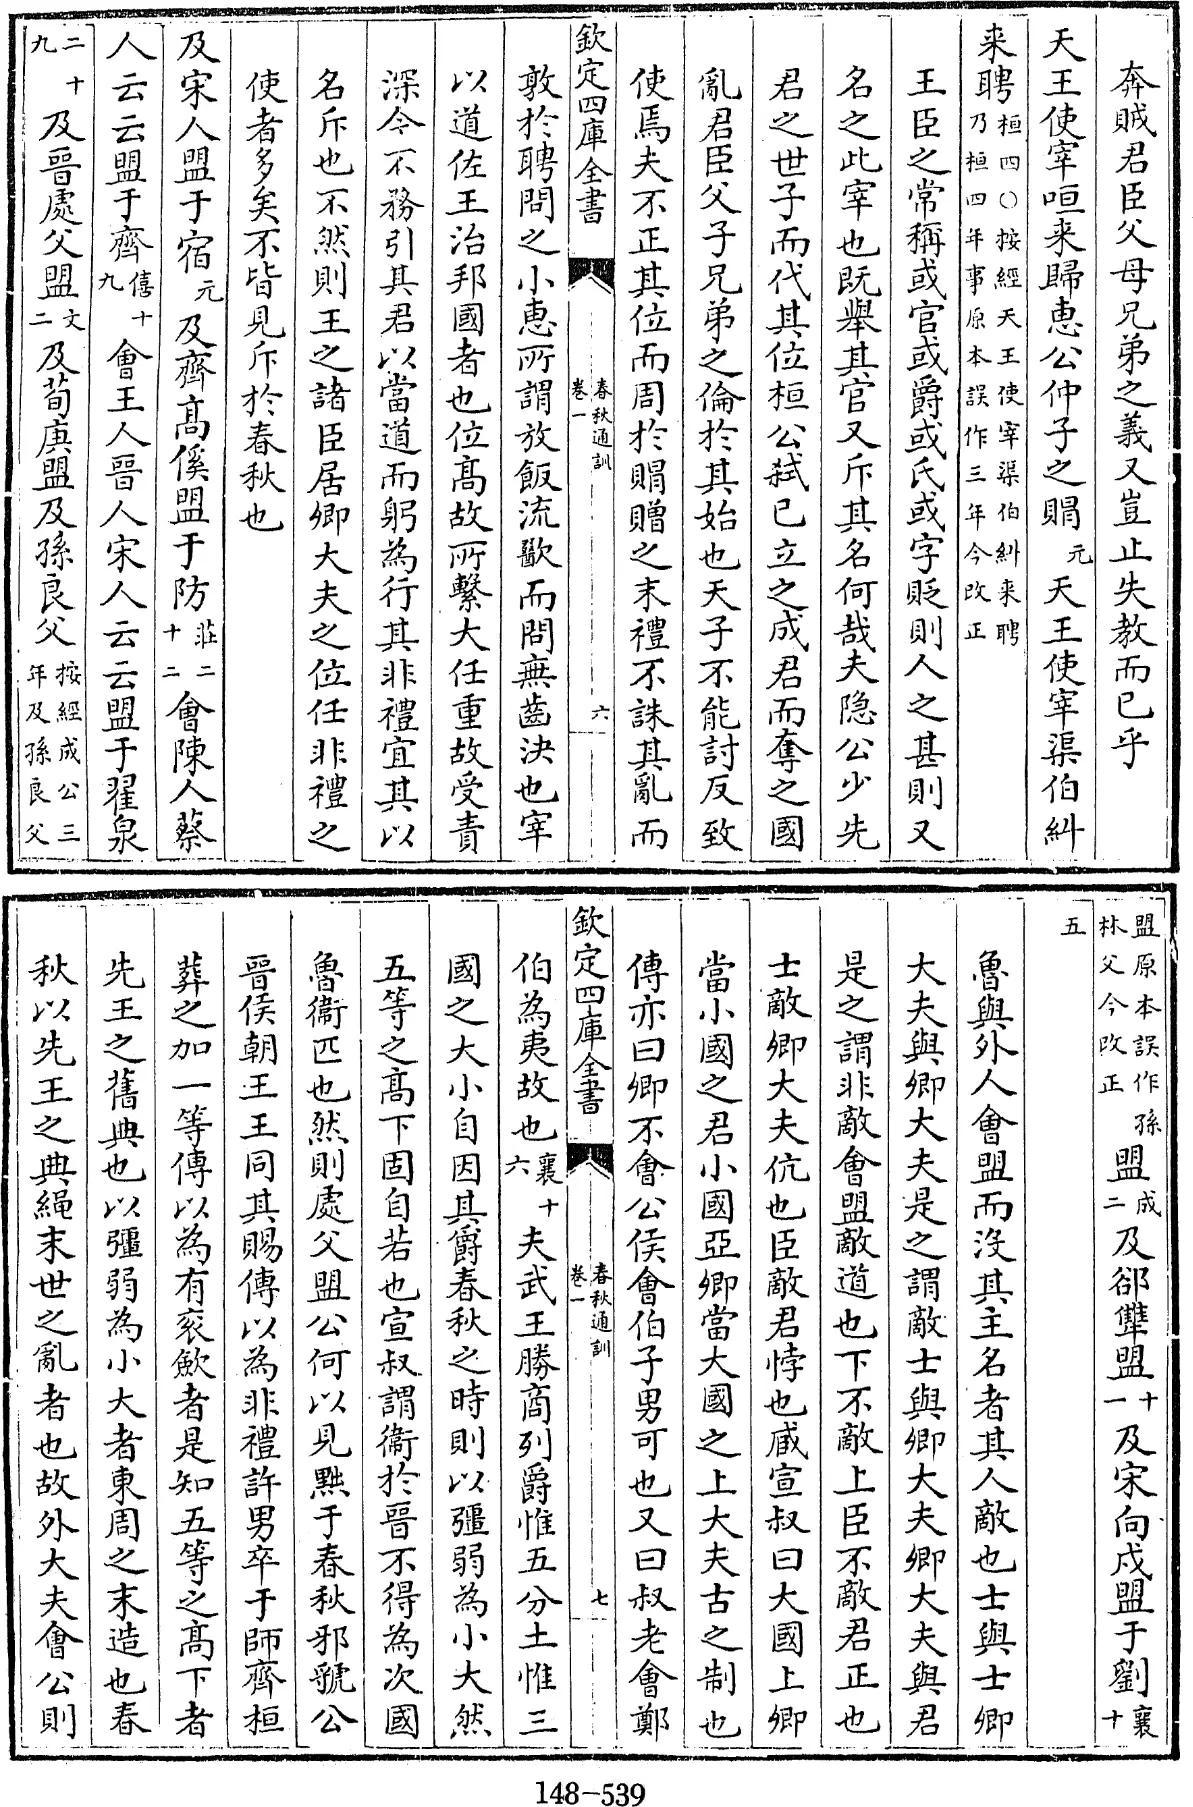 奔賊君臣父母兄弟之義又豈止失教而已乎
天王使宰咺来歸惠公仲子之賵元天王使宰渠伯糾
来聘桓四○按經天王使宰渠伯糾来聘乃桓四年事原本誤作三年今改正
王臣之常稱或官或爵或氏或字貶則人之甚則又
名之此宰也既舉其官又斥其名何哉夫隐公少先
君之世子而代其位桓公弑已立之成君而奪之國
亂君臣父子兄弟之倫於其始也天子不能討反致
使焉夫不正其位而周於賵贈之末禮不誅其亂而
欽定四庫全書
春秋通訓
卷一
六
敦於聘問之小惠所謂放飯流歠而問無齒決也宰
以道佐王治邦國者也位髙故所繫大任重故受責
深今不務引其君以當道而躬為行其非禮宜其以
名斥也不然則王之諸臣居卿大夫之位任非禮之
使者多矣不皆見斥於春秋也
及宋人盟于宿元及齊髙傒盟于防莊二十二會陳人蔡
人云云盟于齊僖十九會王人晉人宋人云云盟于翟泉
二十九及晉處父盟文二及荀庚盟及孫良父按經成公三年及孫良父
盟原本誤作孫林父今改正盟成二及郤犫盟十一及宋向戍盟于劉襄十
五
魯與外人會盟而沒其主名者其人敵也士與士卿
大夫與卿大夫是之謂敵士與卿大夫卿大夫與君
是之謂非敵會盟敵道也下不敵上臣不敵君正也
士敵卿大夫伉也臣敵君悖也臧宣叔曰大國上卿
當小國之君小國亞卿當大國之上大夫古之制也
傳亦曰卿不會公侯會伯子男可也又曰叔老會鄭
欽定四庫全書
春秋通訓
卷一
七
伯為夷故也襄十六夫武王勝商列爵惟五分土惟三
國之大小自因其爵春秋之時則以彊弱為小大然
五等之髙下固自若也宣叔謂衛於晉不得為次國
魯衛匹也然則處父盟公何以見黜于春秋邪虢公
晉侯朝王王同其賜傳以為非禮許男卒于師齊桓
葬之加一等傳以為有衮斂者是知五等之髙下者
先王之舊典也以彊弱為小大者東周之末造也春
秋以先王之典繩末世之亂者也故外大夫會公則
148-539